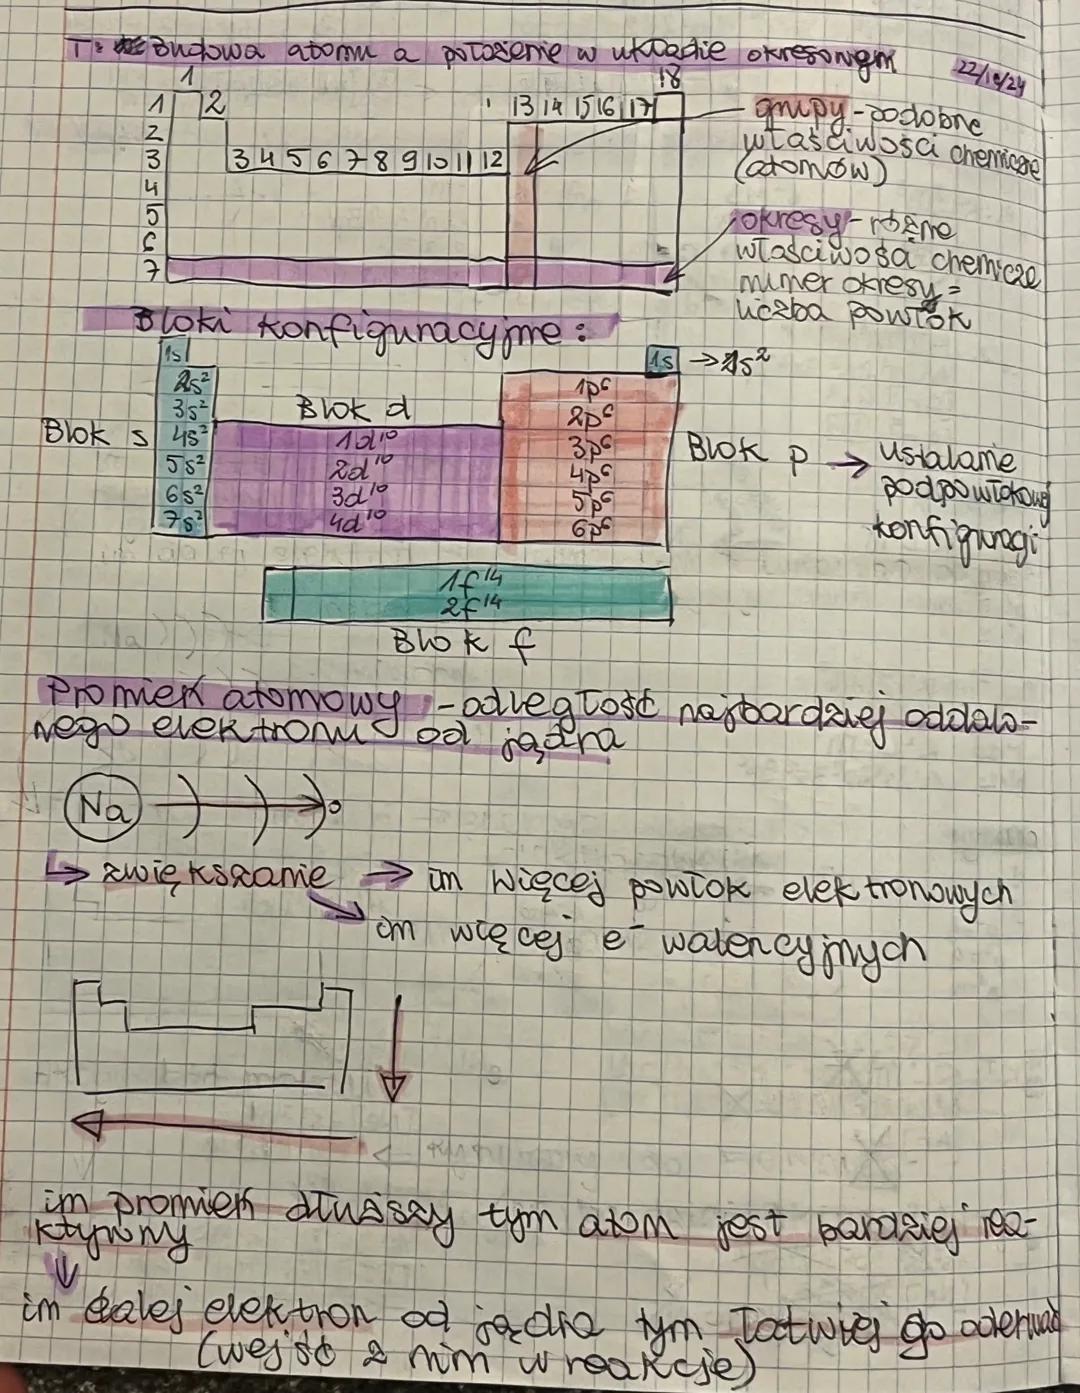 T: Budowa atomu a położenie w układzie okresowym
22/10/24
1 18
1 2 13 14 15 16 17
2
3 3 4 5 6 7 8 9 10 11 12
4
5
6
7
grupy - podobne
właściwości chemiczne
(atomów)
okresy - różne
właściwości chemicze
numer okresy =
liczba powłok
Bloki konfiguracyjne:
1s 1s → 1s²
2s² 1p⁶
3s² Blok d 2p⁶
Blok s 4s² 1d¹⁰ 3p⁶ Blok p → ustalanie
5s² 2d¹⁰ 4p⁶ podpowłokowej
6s² 3d¹⁰ 5p⁶ konfiguragi
7s² 4d¹⁰ 6p⁶
1f¹⁴
2f¹⁴
Blok f
Promień atomowy - odległość najbardziej oddalo-
nego elektronu od jądra
Na
↳ zwiększanie → im więcej powłok elektronowych
↘ im więcej e⁻ walencyjnych
im promień dłuższy tym atom jest bardziej rea-
ktywny
↓
im dalej elektron od jądra tym łatwiej go oderwać
(wejść z nim w reakcje)